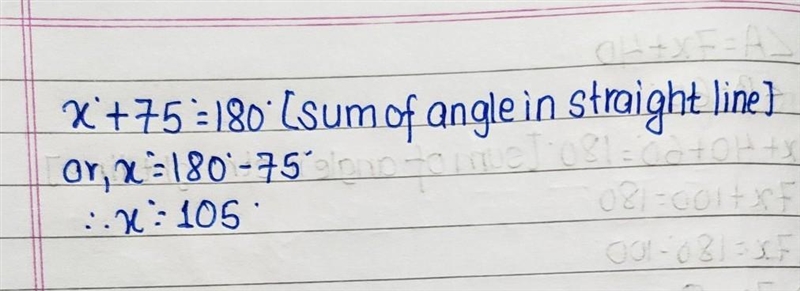 x° + 75° = 180° [sum of angle in straight line]
or, x° = 180° - 75°
∴ x° = 105°